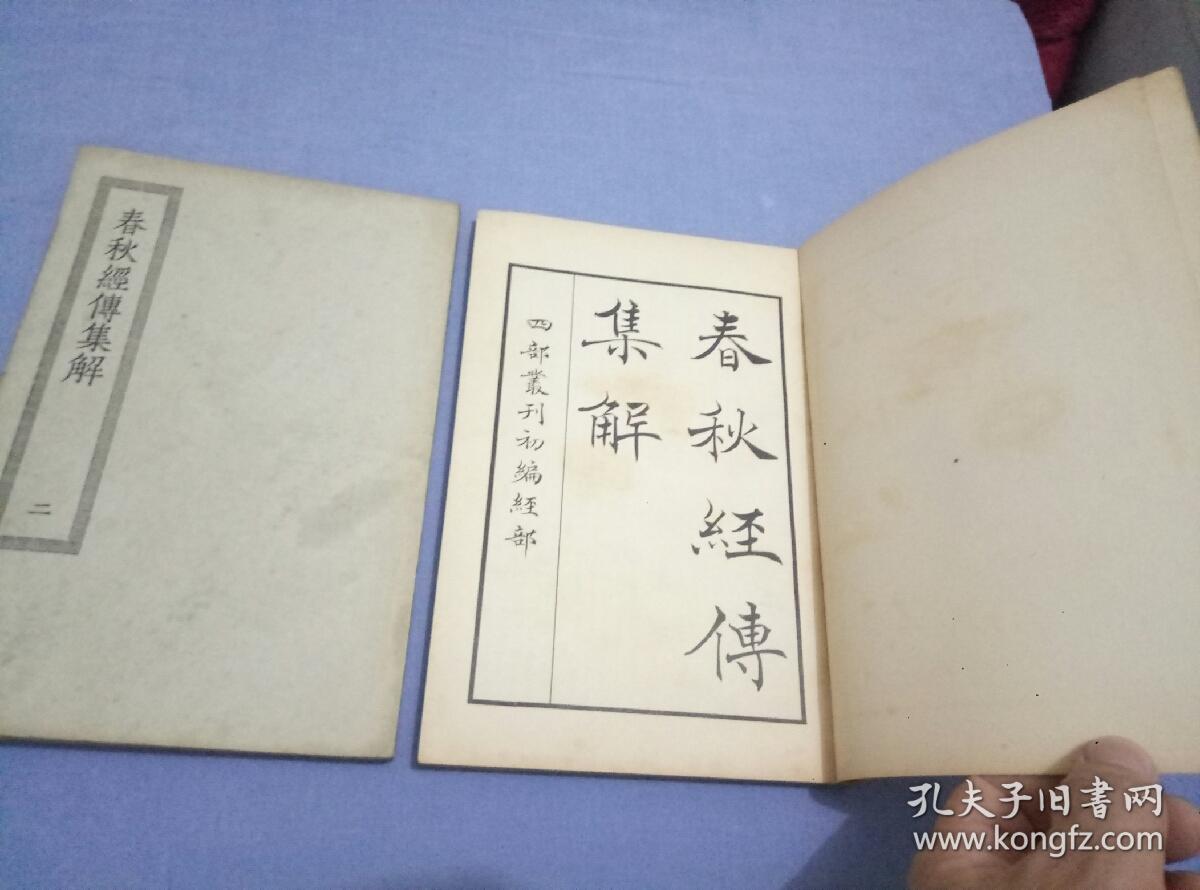 春秋經傳集解
二
春秋經傳
集解
四部叢刊初編經部
孔夫子旧書网
www.kongfz.com